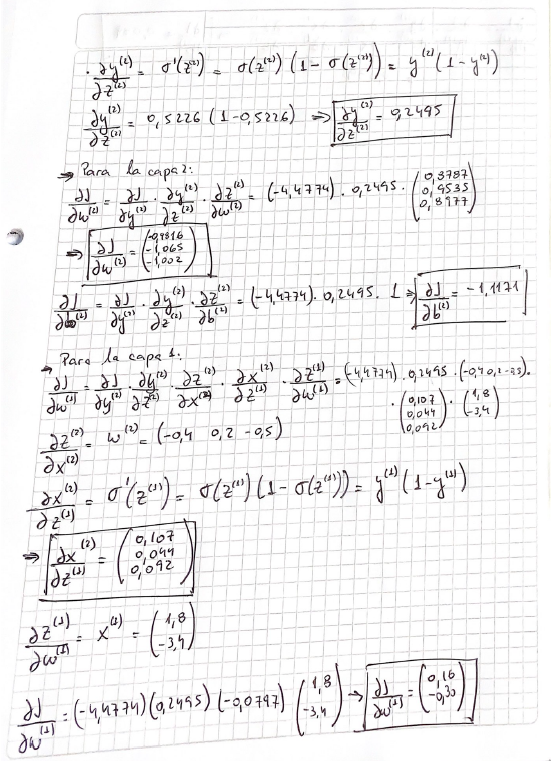 · ∂y⁽²⁾/∂z⁽²⁾ = σ'(z⁽²⁾) = σ(z⁽²⁾) (1 - σ(z⁽²⁾)) = y⁽²⁾ (1 - y⁽²⁾)
∂y⁽²⁾/∂z⁽²⁾ = 0,5226 (1 - 0,5226) ⇒ ∂y⁽²⁾/∂z⁽²⁾ = 0,2495
→ Para la capa 2:
∂J/∂w⁽²⁾ = ∂J/∂y⁽²⁾ · ∂y⁽²⁾/∂z⁽²⁾ · ∂z⁽²⁾/∂w⁽²⁾ = (-4,4774) · 0,2495 · (0,8787 0,9535 0,8977)
⇒ ∂J/∂w⁽²⁾ = (-0,9816 -1,065 -1,002)
∂J/∂b⁽²⁾ = ∂J/∂y⁽²⁾ · ∂y⁽²⁾/∂z⁽²⁾ · ∂z⁽²⁾/∂b⁽²⁾ = (-4,4774) · 0,2495 · 1 ⇒ ∂J/∂b⁽²⁾ = -1,1171
→ Para la capa 1:
∂J/∂w⁽¹⁾ = ∂J/∂y⁽²⁾ · ∂y⁽²⁾/∂z⁽²⁾ · ∂z⁽²⁾/∂x⁽²⁾ · ∂x⁽²⁾/∂z⁽¹⁾ · ∂z⁽¹⁾/∂w⁽¹⁾ = (-4,4774) · 0,2495 ·
· (0,107 0,044 0,092) · (1,8 -3,4)
∂z⁽²⁾/∂x⁽²⁾ = w⁽²⁾ = (-0,4 0,2 -0,5)
∂x⁽²⁾/∂z⁽¹⁾ = σ'(z⁽¹⁾) = σ(z⁽¹⁾) (1 - σ(z⁽¹⁾)) = y⁽¹⁾ (1 - y⁽¹⁾)
⇒ ∂x⁽²⁾/∂z⁽¹⁾ = (0,107 0,044 0,092)
∂z⁽¹⁾/∂w⁽¹⁾ = x⁽¹⁾ = (1,8 -3,4)
∂J/∂w⁽¹⁾ = (-4,4774) (0,2495) (-0,0797) (1,8 -3,4) → ∂J/∂w⁽¹⁾ = (0,16 -0,30)